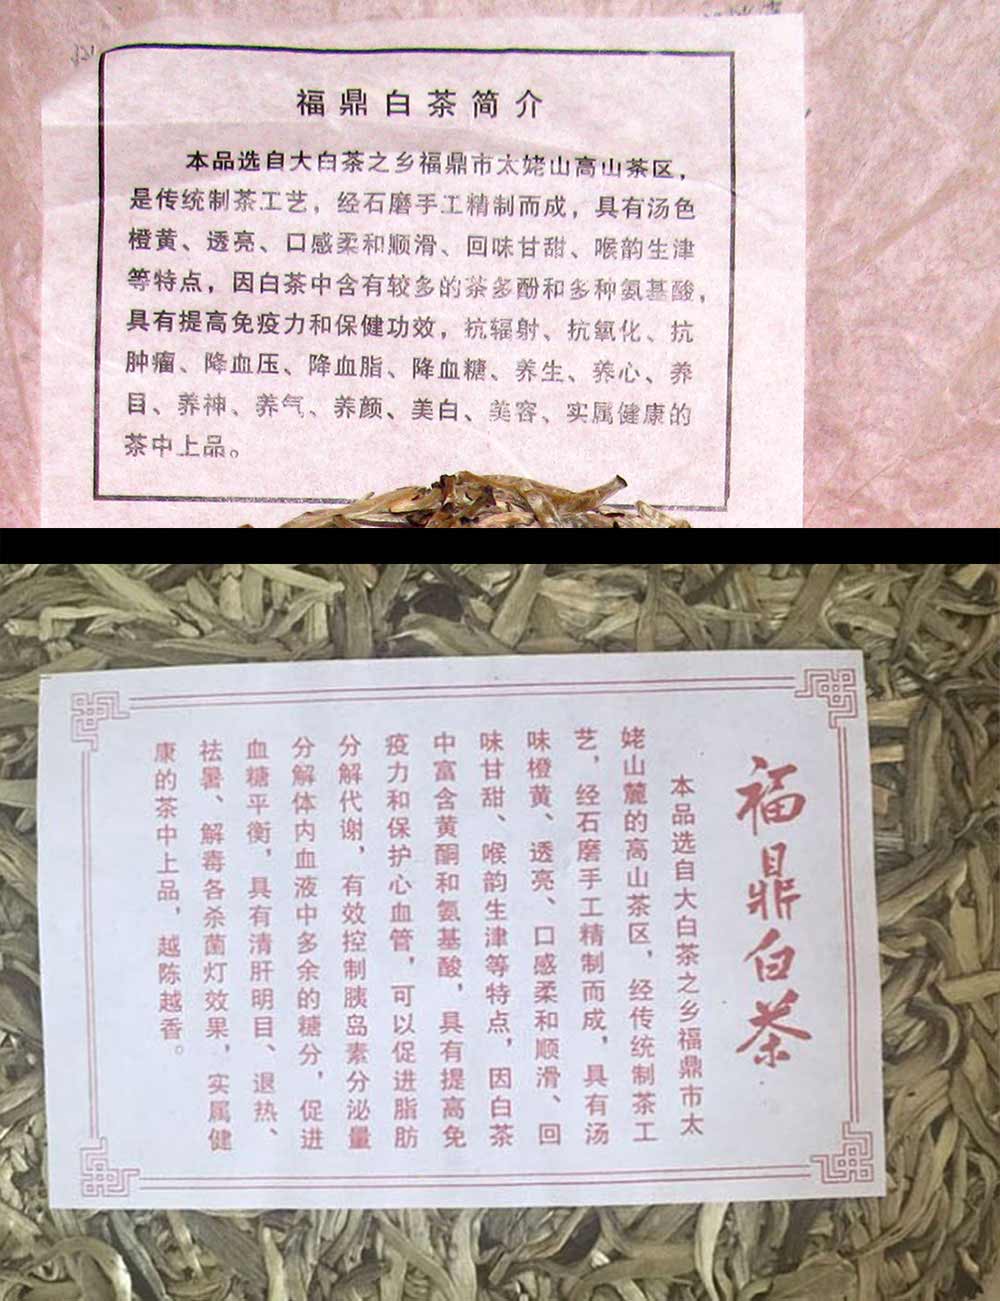 福鼎白茶简介
本品选自大白茶之乡福鼎市太姥山高山茶区，
是传统制茶工艺，经石磨手工精制而成，具有汤色
橙黄、透亮、口感柔和顺滑、回味甘甜、喉韵生津
等特点，因白茶中含有较多的茶多酚和多种氨基酸，
具有提高免疫力和保健功效，抗辐射、抗氧化、抗
肿瘤、降血压、降血脂、降血糖、养生、养心、养
目、养神、养气、养颜、美白、美容、实属健康的
茶中上品。
福鼎白茶
本品选自大白茶之乡福鼎市太
姥山麓的高山茶区，经传统制茶工
艺，经石磨手工精制而成，具有汤
味橙黄、透亮、口感柔和顺滑、回
味甘甜、喉韵生津等特点，因白茶
中富含黄酮和氨基酸，具有提高免
疫力和保护心血管，可以促进脂肪
分解代谢，有效控制胰岛素分泌量
分解体内血液中多余的糖分，促进
血糖平衡，具有清肝明目、退热、
祛暑、解毒各杀菌灯效果，实属健
康的茶中上品，越陈越香。